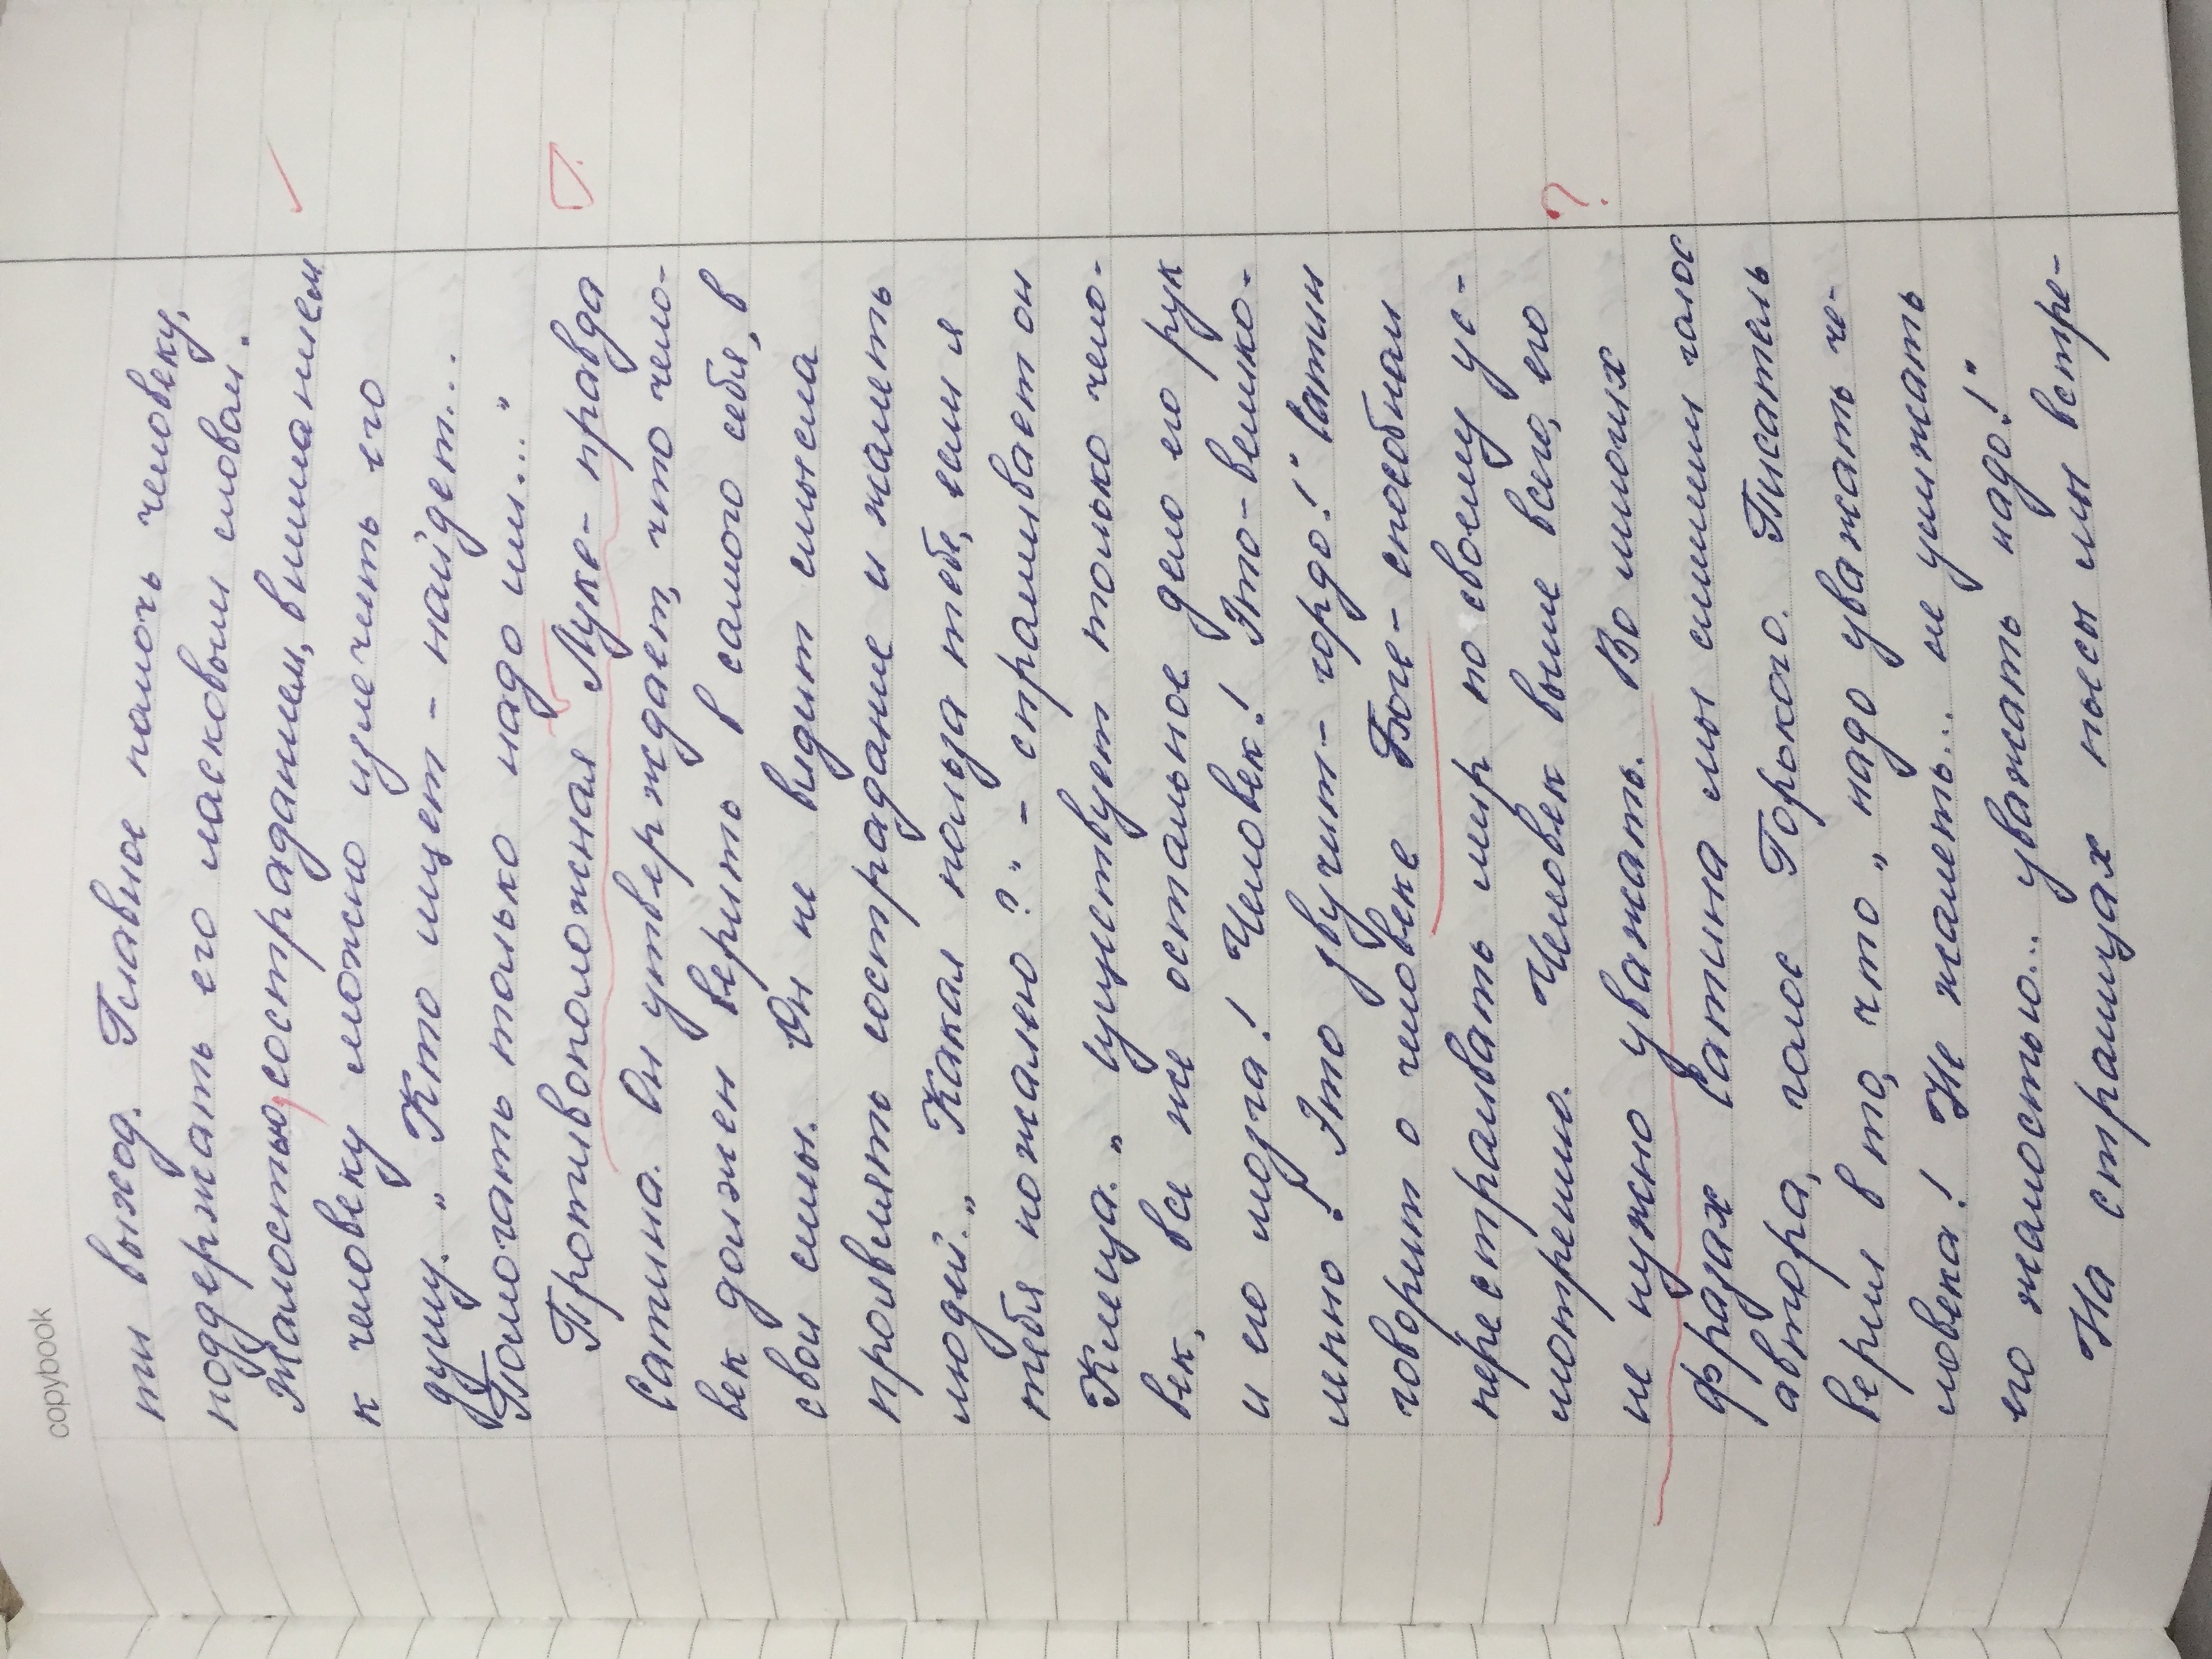 copybook
ти выход. Главное помочь человеку,
поддержать его ласковым словом.
Жалостью, состраданием, вниманием
к человеку можно излечить его
душу. „ Кто ищет - найдет...
Помогать только надо им..."
Противоположная Луке - правда
Сатина. Он утверждает, что чело-
век должен верить в самого себя, в
свои силы. Он не видит смысла
проявлять сострадание и жалеть
людей. „ Какая польза тебе, если я
тебя пожалею?" - спрашивает он
Клеща. „ Существует только чело-
век, все же остальное дело его рук
и его мозга! Человек! Это - велико-
лепно! Это звучит - гордо!" Сатин
говорит о человеке Боге - способном
перестраивать мир по своему ус-
мотрению. Человек выше всего, его
не нужно уважать. Во многих
?
фразах Сатина мы слышим голос
автора, голос Горького. Писатель
верил в то, что „ надо уважать че-
ловека! Не жалеть... не унижать
его жалостью... уважать надо!"
На страницах пьесы мы встре-